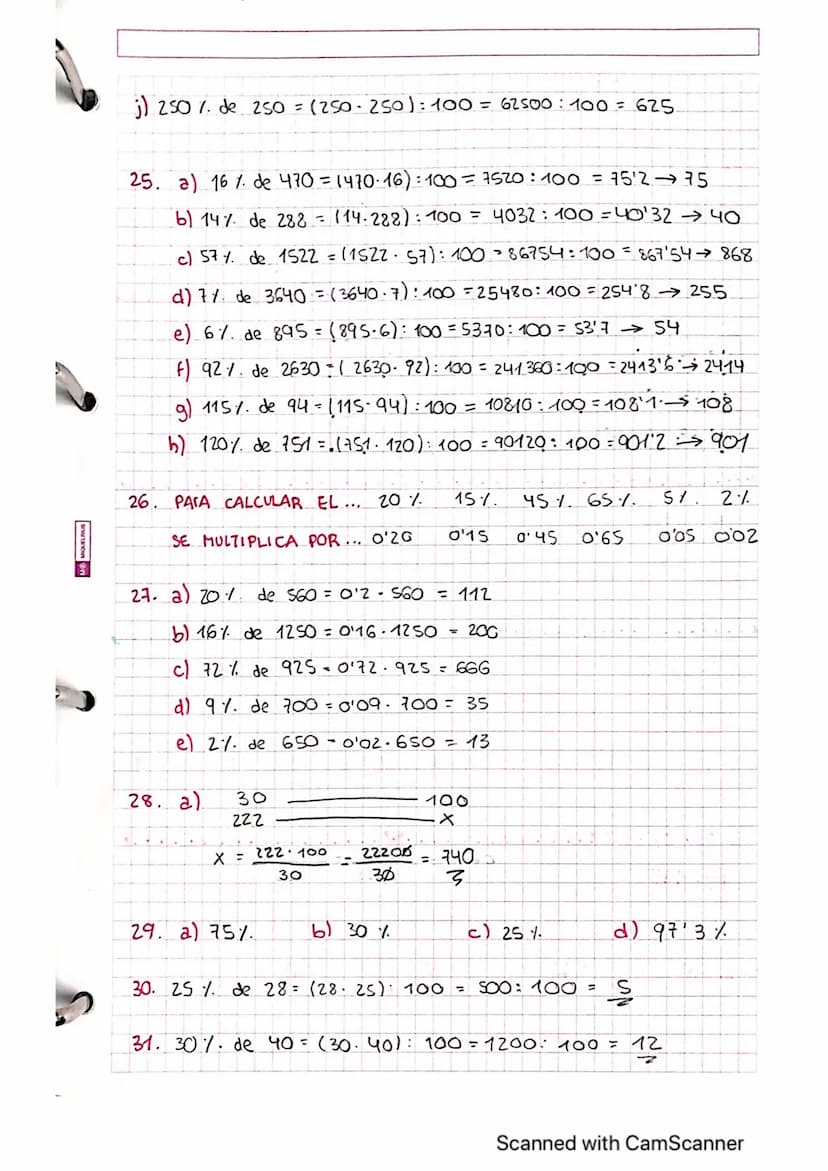 j) 250 % de 250 = (250 · 250) : 100 = 62500 : 100 = 625
25. a) 16 % de 470 = (470·16) : 100 = 7520 : 100 = 75'2 → 75
b) 14 % de 288 = (14·288) : 100 = 4032 : 100 = 40'32 → 40
c) 57 % de 1522 = (1522 · 57) : 100 = 86754 : 100 = 867'54 → 868
d) 7 % de 3640 = (3640 · 7) : 100 = 25480 : 100 = 254'8 → 255
e) 6 % de 895 = (895·6) : 100 = 5370 : 100 = 53'7 → 54
f) 92 % de 2630 = (2630 · 92) : 100 = 241.360 : 100 = 2413'6 → 2414
g) 115 % de 94 = (115·94) : 100 = 10810 : 100 = 108'1 → 108
h) 120 % de 751 = (751 · 120) : 100 = 90120 : 100 = 901'2 → 901
26. PARA CALCULAR EL... 20 % 15 % 45 % 65 % 5 % 2 %
SE MULTIPLICA POR... 0'20 0'15 0'45 0'65 0'05 0'02
27. a) 20 % de 560 = 0'2 · 560 = 112
b) 16 % de 1250 = 0'16 · 1250 = 200
c) 72 % de 925 = 0'72 · 925 = 666
d) 9 % de 700 = 0'09 · 700 = 35
e) 2 % de 650 = 0'02 · 650 = 13
28. a) 30 — 100
222 — x
x = 222 · 100 / 30 = 22200 / 30 = 740
29. a) 75 % b) 30 % c) 25 % d) 97'3 %
30. 25 % de 28 = (28 · 25) : 100 = 500 : 100 = 5
31. 30 % de 40 = (30 · 40) : 100 = 1200 : 100 = 12
MIQUELRIUS
Scanned with CamScanner